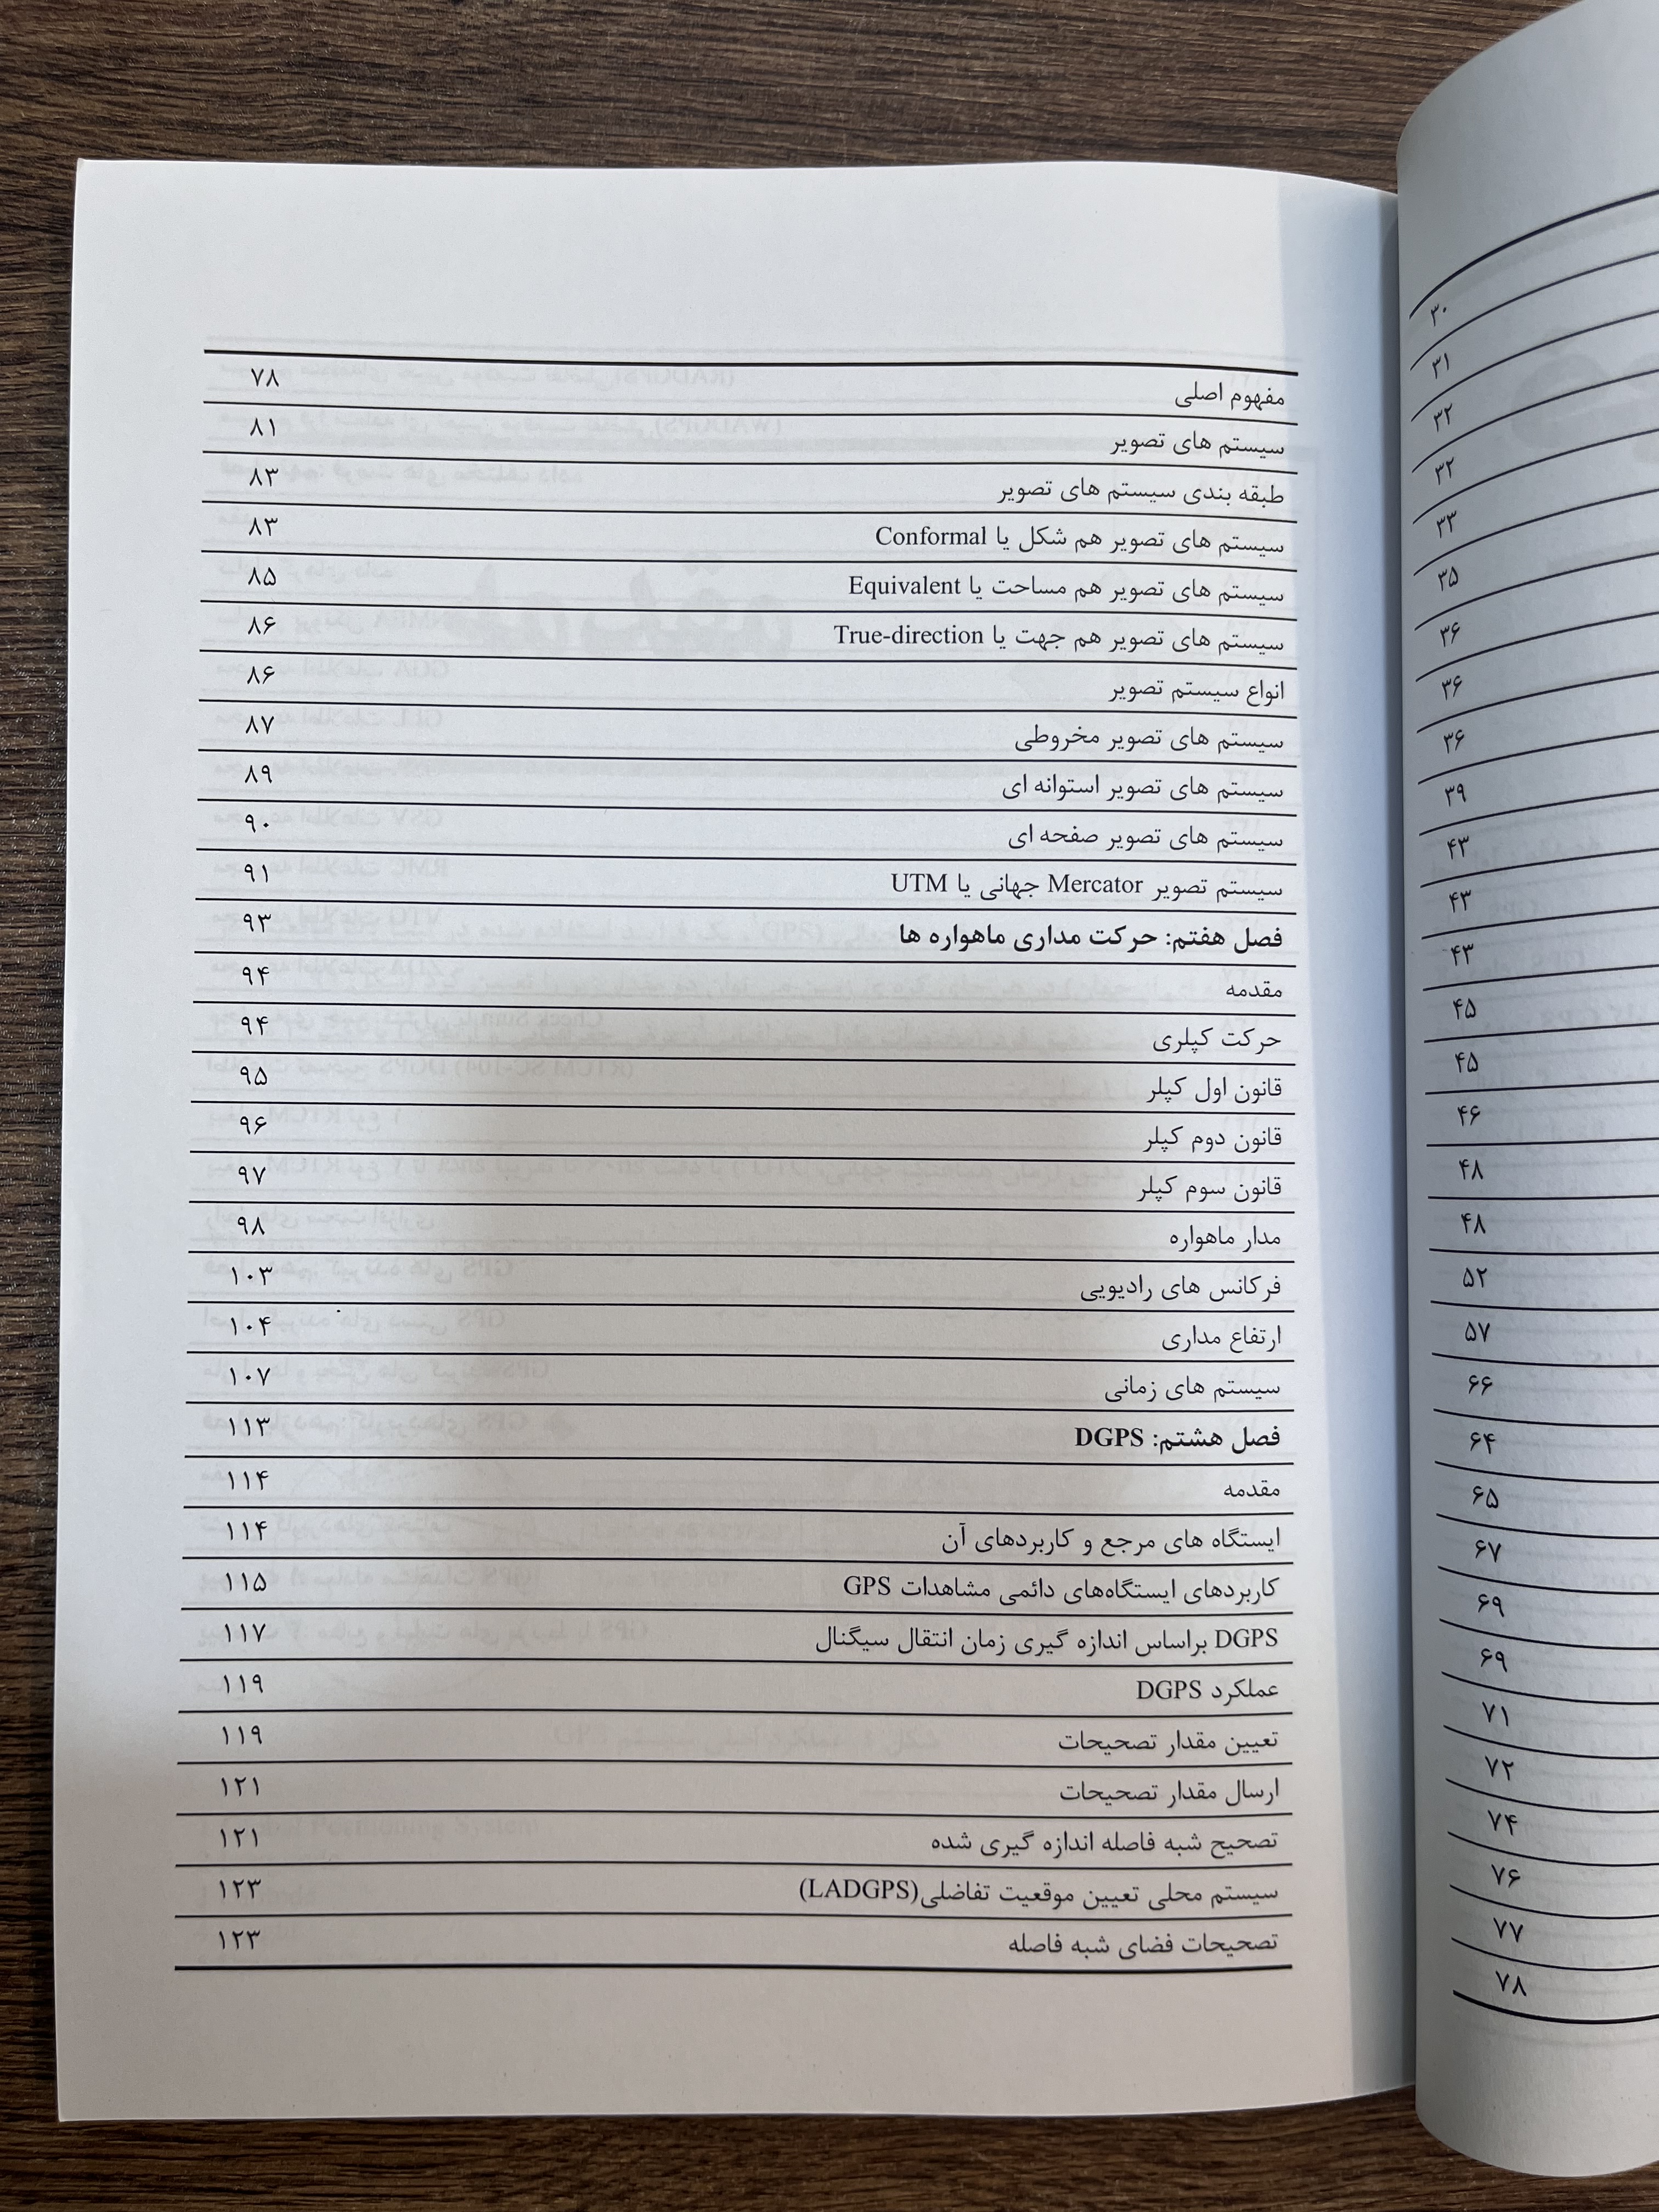 مفهوم اصلی ۷۸
سیستم های تصویر ۸۱
طبقه بندی سیستم های تصویر ۸۳
سیستم های تصویر هم شکل یا Conformal ۸۳
سیستم های تصویر هم مساحت یا Equivalent ۸۵
سیستم های تصویر هم جهت یا True-direction ۸۶
انواع سیستم تصویر ۸۶
سیستم های تصویر مخروطی ۸۷
سیستم های تصویر استوانه ای ۸۹
سیستم های تصویر صفحه ای ۹۰
سیستم تصویر Mercator جهانی یا UTM ۹۱
فصل هفتم: حرکت مداری ماهواره ها ۹۳
مقدمه ۹۴
حرکت کپلری ۹۴
قانون اول کپلر ۹۵
قانون دوم کپلر ۹۶
قانون سوم کپلر ۹۷
مدار ماهواره ۹۸
فرکانس های رادیویی ۱۰۳
ارتفاع مداری ۱۰۴
سیستم های زمانی ۱۰۷
فصل هشتم: DGPS ۱۱۳
مقدمه ۱۱۴
ایستگاه های مرجع و کاربردهای آن ۱۱۴
کاربردهای ایستگاه‌های دائمی مشاهدات GPS ۱۱۵
DGPS براساس اندازه گیری زمان انتقال سیگنال ۱۱۷
عملکرد DGPS ۱۱۹
تعیین مقدار تصحیحات ۱۱۹
ارسال مقدار تصحیحات ۱۲۱
تصحیح شبه فاصله اندازه گیری شده ۱۲۱
سیستم محلی تعیین موقعیت تفاضلی(LADGPS) ۱۲۳
تصحیحات فضای شبه فاصله ۱۲۳
۳۰
۳۱
۳۲
۳۲
۳۳
۳۵
۳۶
۳۶
۳۶
۳۹
۴۳
۴۳
۴۳
۴۵
۴۵
۴۶
۴۸
۴۸
۵۲
۵۷
۶۶
۶۴
۶۵
۶۷
۶۹
۶۹
۷۱
۷۲
۷۴
۷۶
۷۷
۷۸